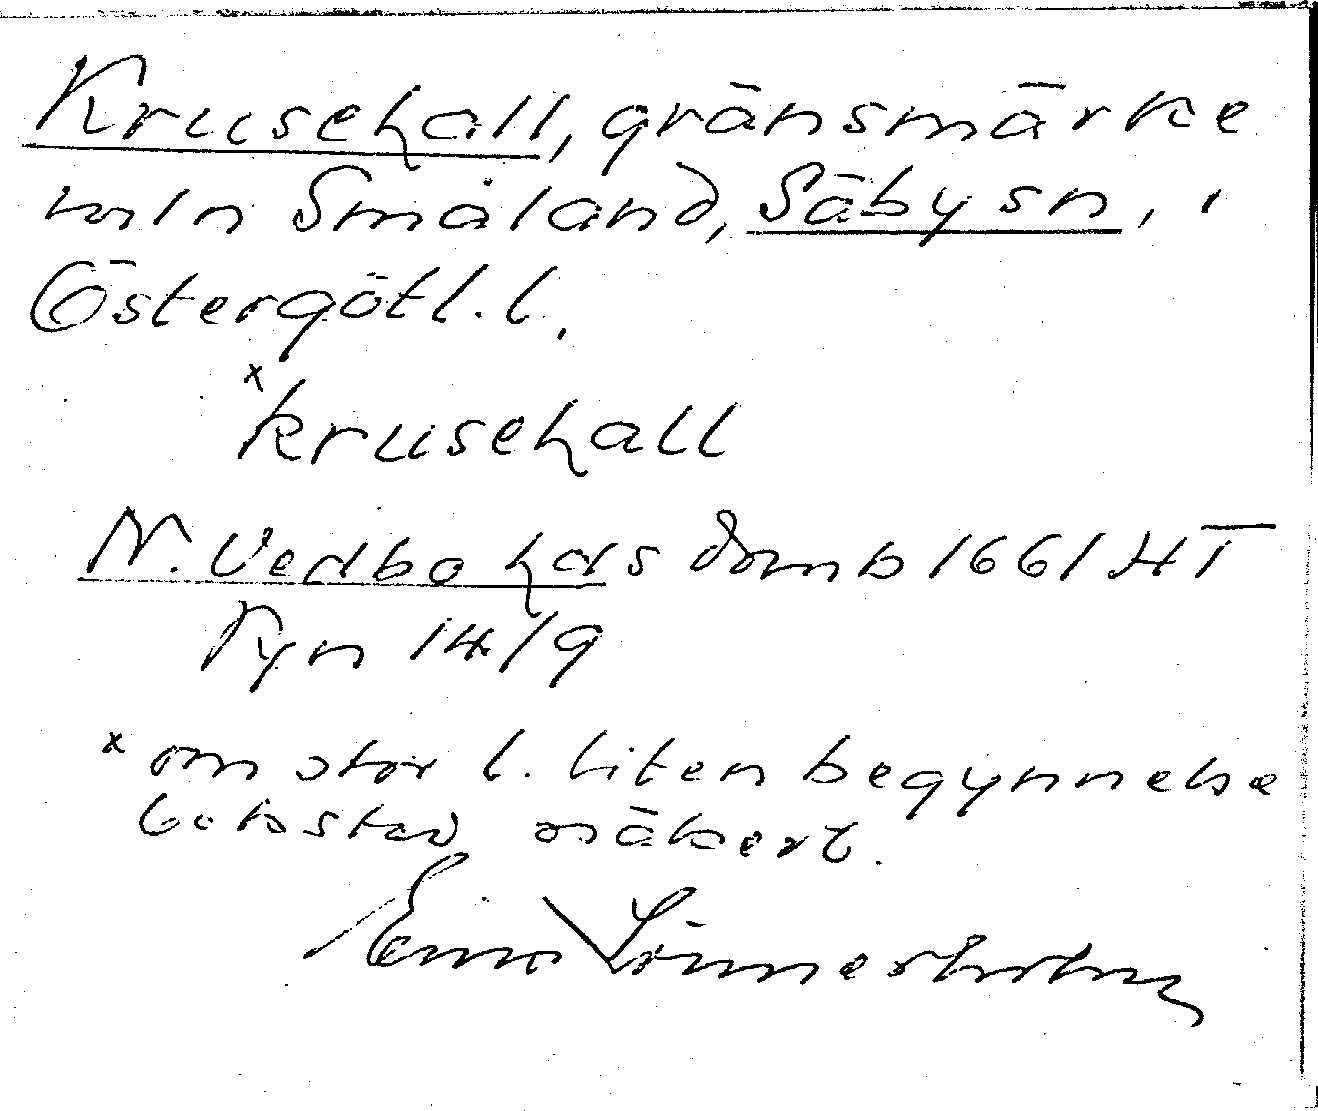 Krusehall, gränsmärke
mln Småland, Säby sn, i
Östergötl. l.
x
krusehall
N. Vedbo hds domb 1661 HT
Ryn 14/9
x om stor l. liten begynnelse
bokstav osäkert.
Linnerholm